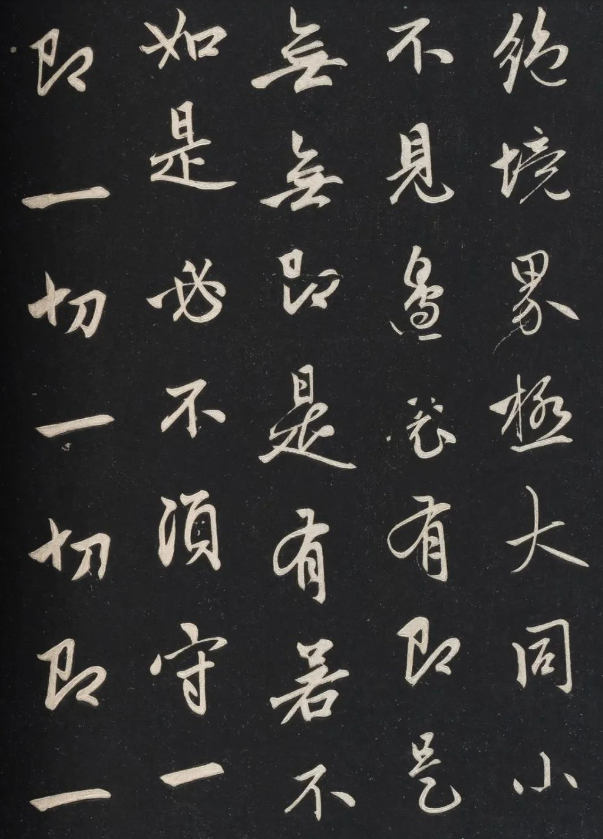 絶境界極大同小
不見邊表有即是
無無即是有若不
如是必不須守一
即一切一切即一